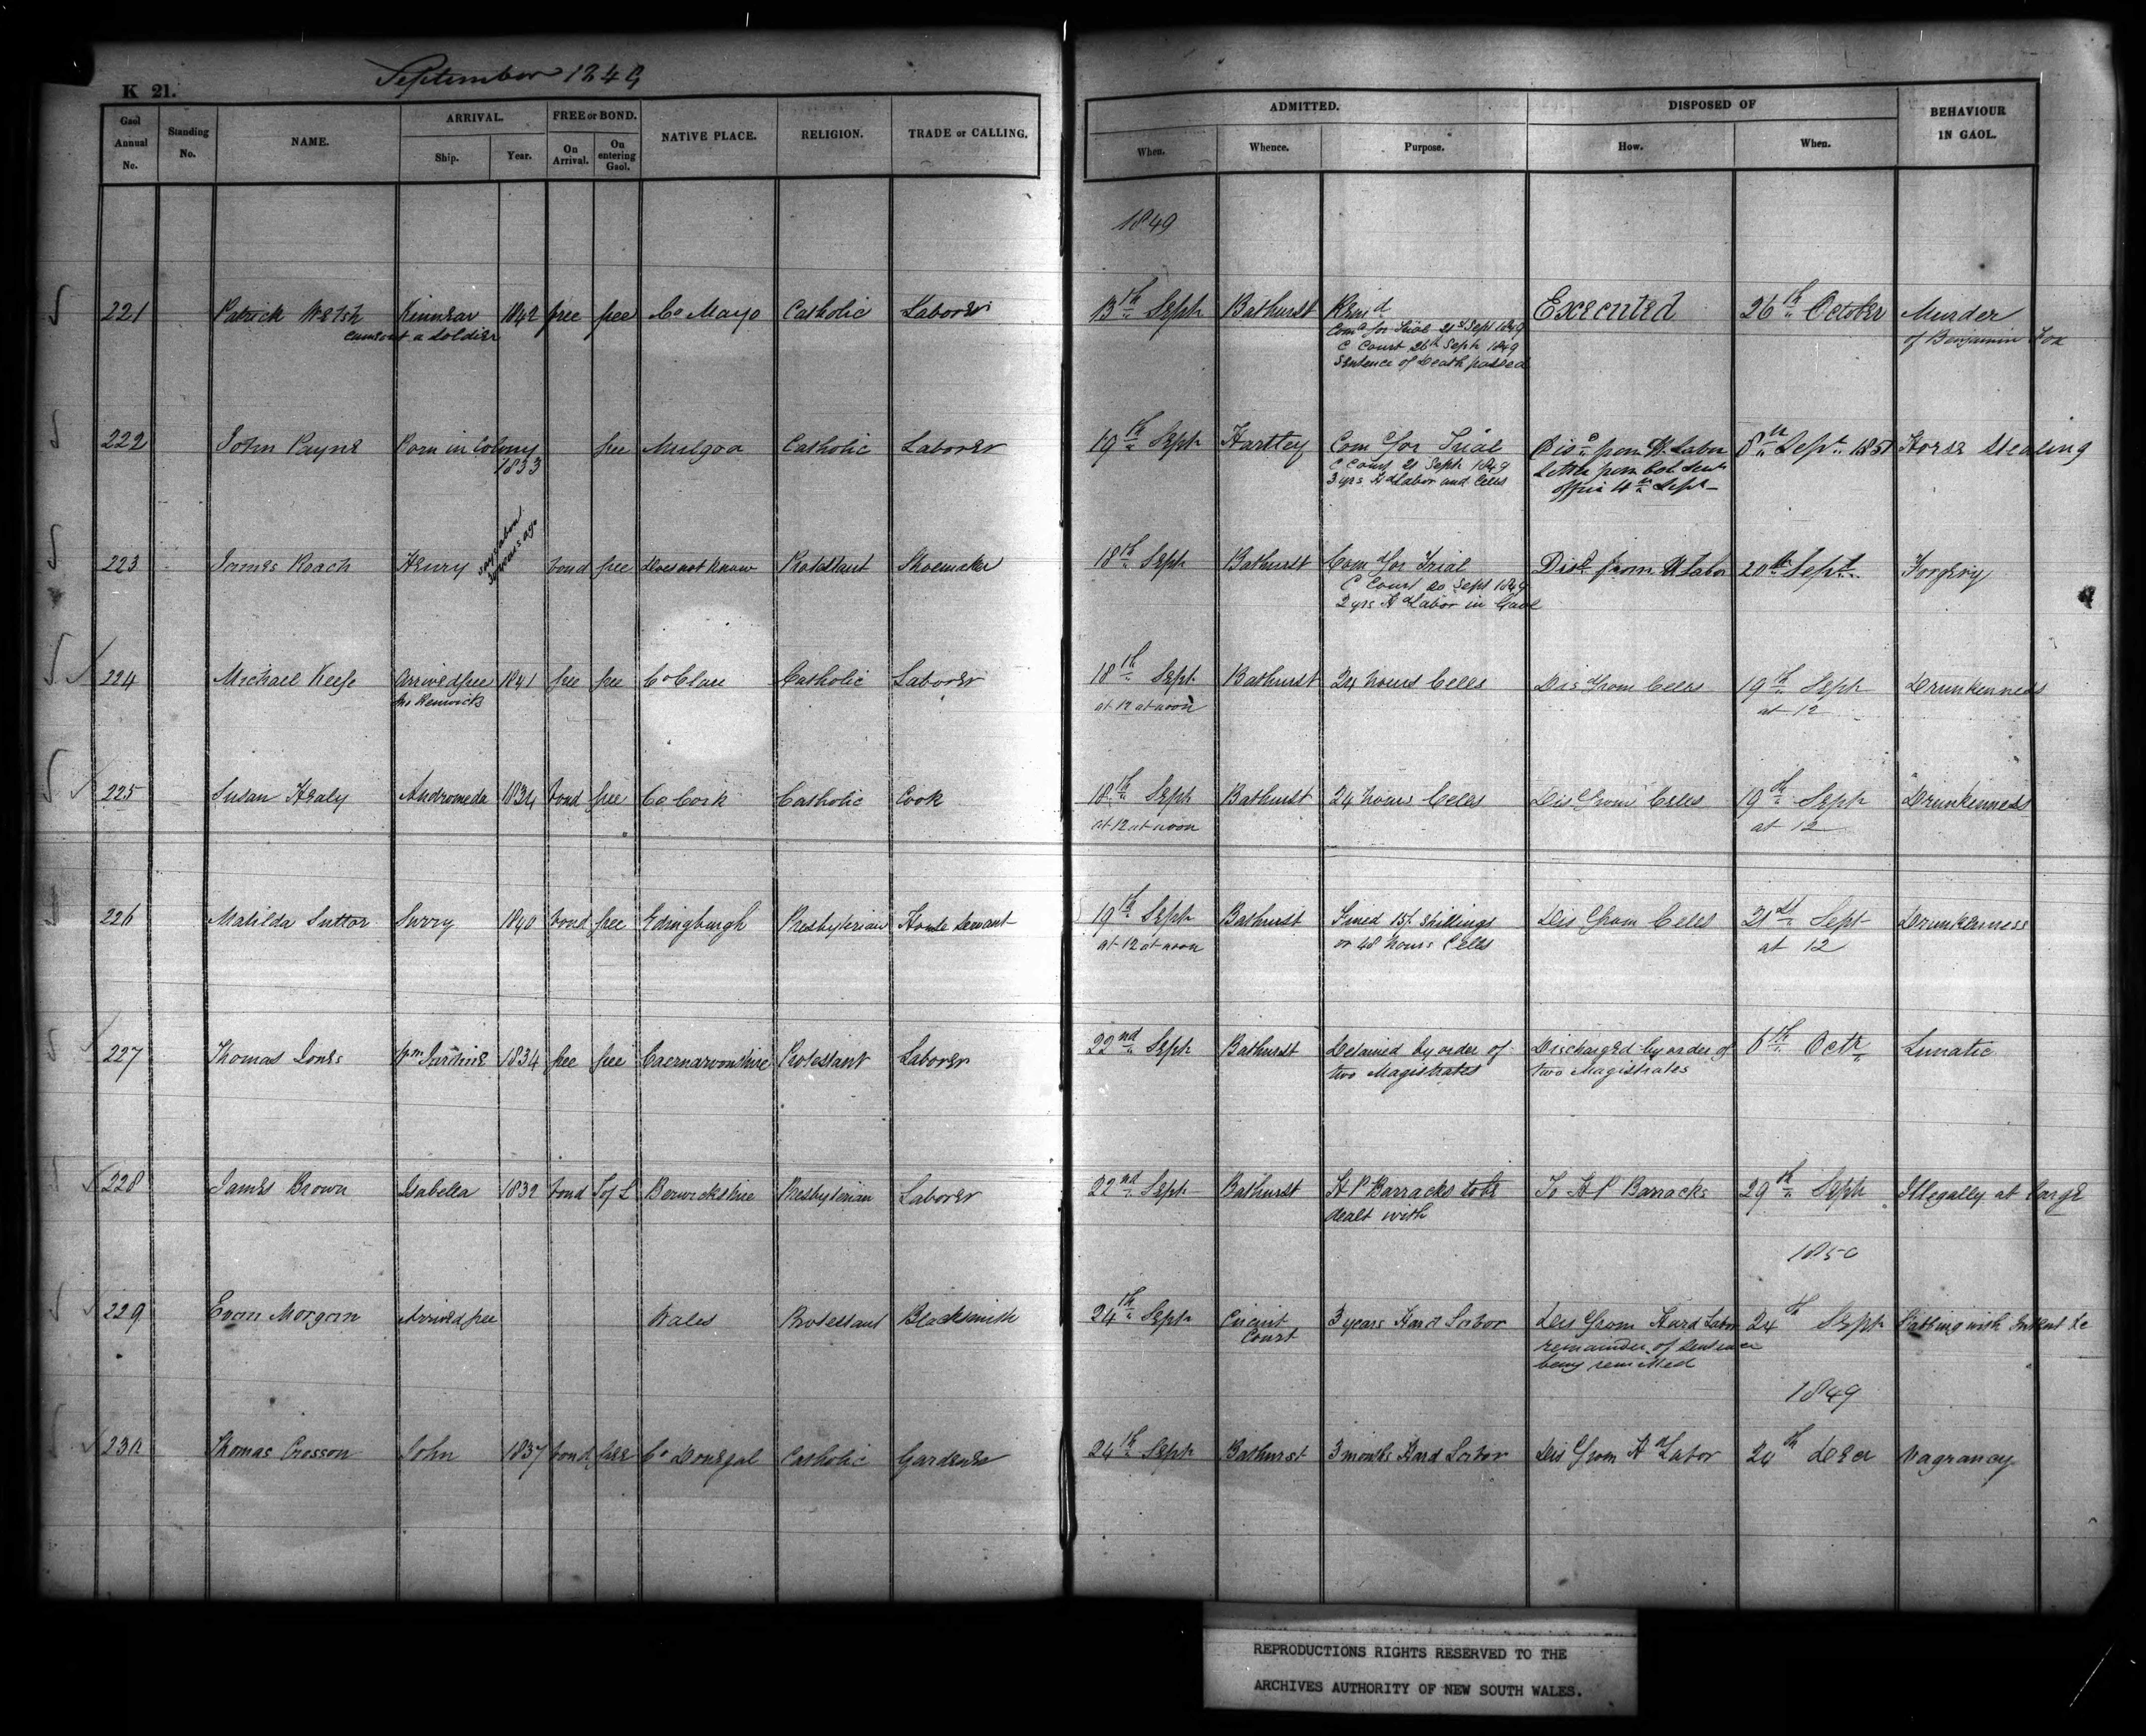 September 1849
K 21.
Gaol Annual No. | Standing No. | NAME. | ARRIVAL. Ship. | Year. | FREE or BOND. On Arrival. | On entering Gaol. | NATIVE PLACE. | RELIGION. | TRADE or CALLING. | ADMITTED. When. | Whence. | Purpose. | DISPOSED OF How. | When. | BEHAVIOUR IN GAOL.
1849
221 Patrick Welsh Kinnear 1842 free free Co Mayo Catholic Laborer 13th Sept Bathurst Remd Executed 26th October Murder
came out a Soldier Comd for Trial 21st Sept 1849 of Benjamin Fox
C Court 26th Sept 1849
Sentence of Death passed
222 John Payne Born in Colony free Mulgoa Catholic Laborer 19th Sept Hartley Comd for Trial Disd from Hd Labor 8th Sept 1851 Horse Stealing
1833 C Court 21 Sept 1849 Letter from Col Secs
3 yrs Hd Labor and Cells Office 4th Sept
223 James Roach Henry says about years ago bond free does not know Protestant Shoemaker 18th Sept Bathurst Comd for Trial Disd from H Labor 20th Sept Forgery
C Court 20 Sept 1849
2 yrs Hd Labor in Gaol
224 Michael Keefe Arrived free 1841 free free Co Clare Catholic Laborer 18th Sept Bathurst 24 hours Cells Disd from Cells 19th Sept Drunkenness
Jno Renwicks at 12 at noon at 12
225 Susan Healy Andromeda 1834 bond free Co Cork Catholic Cook 18th Sept Bathurst 24 hours Cells Disd from Cells 19th Sept Drunkenness
at 12 at noon at 12
226 Matilda Suttor Surry 1840 bond free Edingburgh Presbyterian House Servant 19th Sept Bathurst Fined 15/ Shillings Disd from Cells 21st Sept Drunkenness
at 12 at noon or 48 hours Cells at 12
227 Thomas Jones Wm Jardine 1834 free free Caernarvonshire Protestant Laborer 22nd Sept Bathurst Detained by order of Discharged by order of 6th Octr Lunatic
two Magistrates two Magistrates
228 James Brown Isabella 1832 bond T of L Berwickshire Presbyterian Laborer 22nd Sept Bathurst H P Barracks to be To H P Barracks 29th Sept Illegally at large
dealt with
1850
229 Evan Morgan Arrived free Wales Protestant Blacksmith 24th Sept Circuit 3 years Hard Labor Disd from Hard Labor 24th Sept Stabbing with Intent &c
Court remainder of Sentence
being remitted
1849
230 Thomas Crosson John 1837 bond free Co Donegal Catholic Gardener 24th Sept Bathurst 3 months Hard Labor Disd from Hd Labor 24th Decr Vagrancy
REPRODUCTIONS RIGHTS RESERVED TO THE
ARCHIVES AUTHORITY OF NEW SOUTH WALES.